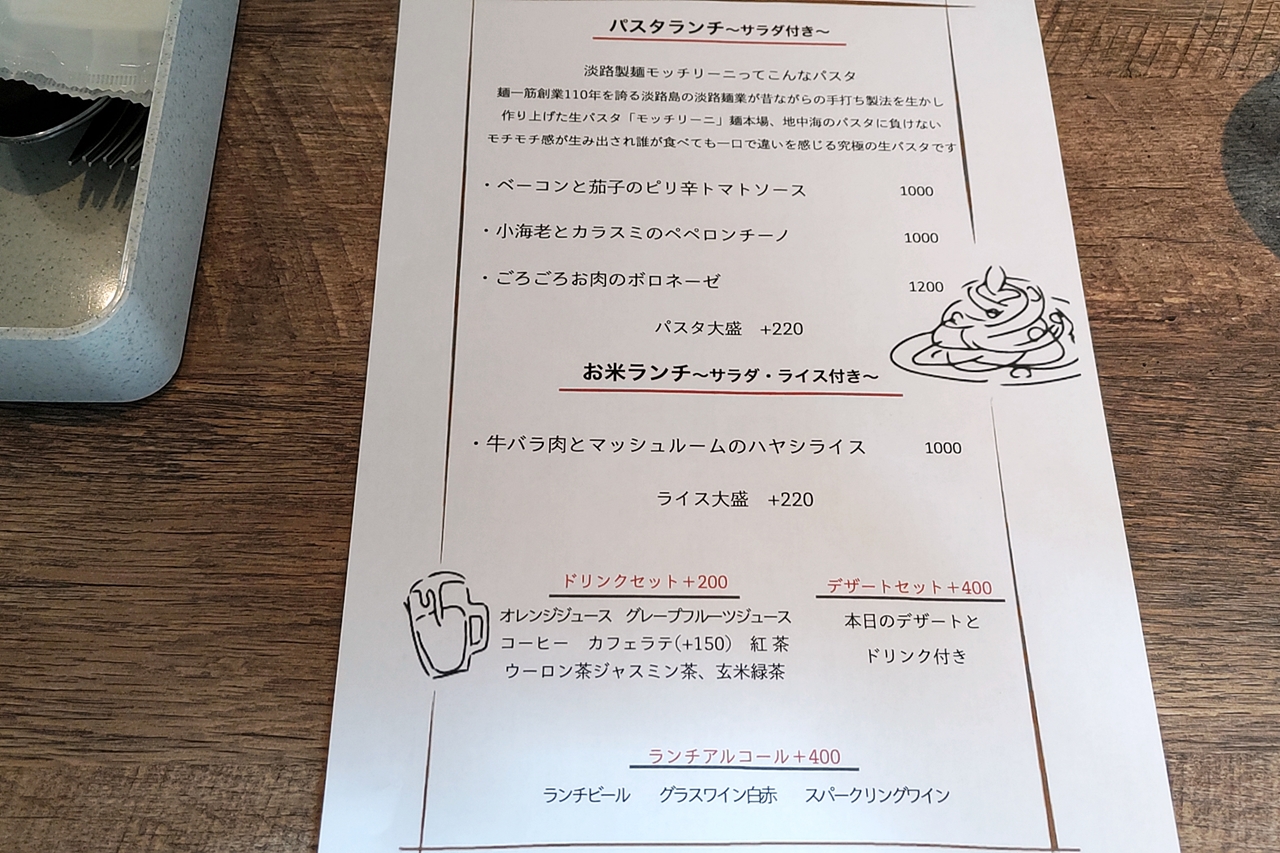 パスタランチ～サラダ付き～
淡路製麺モッチリーニってこんなパスタ
麺一筋創業110年を誇る淡路島の淡路麺業が昔ながらの手打ち製法を生かし
作り上げた生パスタ「モッチリーニ」麺本場、地中海のパスタに負けない
モチモチ感が生み出され誰が食べても一口で違いを感じる究極の生パスタです
・ベーコンと茄子のピリ辛トマトソース 1000
・小海老とカラスミのペペロンチーノ 1000
・ごろごろお肉のボロネーゼ 1200
パスタ大盛 +220
お米ランチ～サラダ・ライス付き～
・牛バラ肉とマッシュルームのハヤシライス 1000
ライス大盛 +220
ドリンクセット＋200
オレンジジュース グレープフルーツジュース
コーヒー カフェラテ(+150) 紅茶
ウーロン茶ジャスミン茶、玄米緑茶
デザートセット＋400
本日のデザートと
ドリンク付き
ランチアルコール＋400
ランチビール グラスワイン白赤 スパークリングワイン